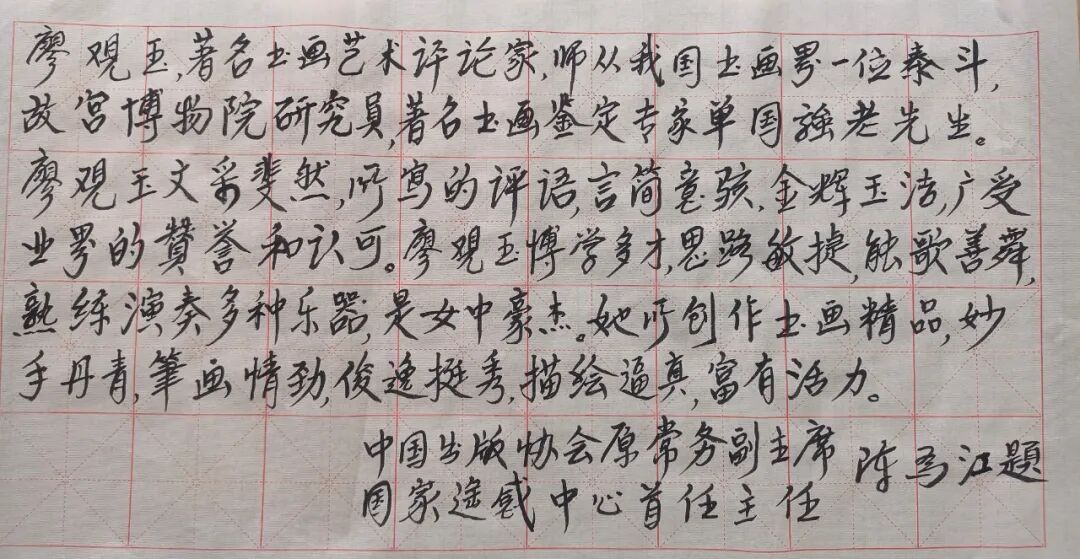 廖观玉,著名书画艺术评论家,师从我国书画界一位泰斗,
故宫博物院研究員,著名书画鉴定专家单国強老先生。
廖观玉文采斐然,所写的评语,言简意骇,金辉玉洁,广受
业界的贊誉和认可。廖观玉博学多才,思路敏捷,能歌善舞,
熟练演奏多种乐器,是女中豪杰。她所创作书画精品,妙
手丹青,筆画情劲,俊逸挺秀,描绘逼真,富有活力。
中国出版协会原常务副主席
国家遥感中心首任主任
陈为江題